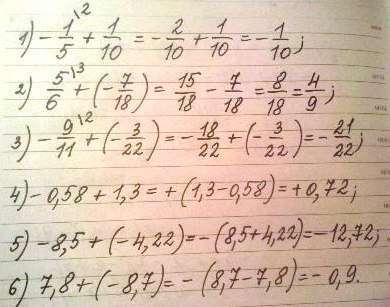 1) -1/5\2 + 1/10 = -2/10 + 1/10 = -1/10;
2) 5/6\3 + (-7/18) = 15/18 - 7/18 = 8/18 = 4/9;
3) -9/11\2 + (-3/22) = -18/22 + (-3/22) = -21/22;
4) -0,58 + 1,3 = +(1,3-0,58) = +0,72;
5) -8,5 + (-4,22) = -(8,5+4,22) = -12,72;
6) 7,8 + (-8,7) = -(8,7-7,8) = -0,9.